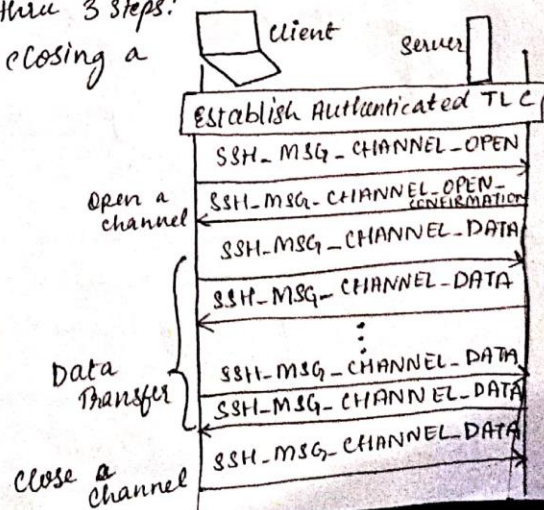 thru 3 steps:
closing a
Client
Server
Establish Authenticated TLC
SSH_MSG_CHANNEL_OPEN
Open a
channel
SSH_MSG_CHANNEL_OPEN_
CONFIRMATION
SSH_MSG_CHANNEL_DATA
SSH_MSG_CHANNEL_DATA
Data
Transfer
SSH_MSG_CHANNEL_DATA
SSH_MSG_CHANNEL_DATA
Close a
channel
SSH_MSG_CHANNEL_DATA